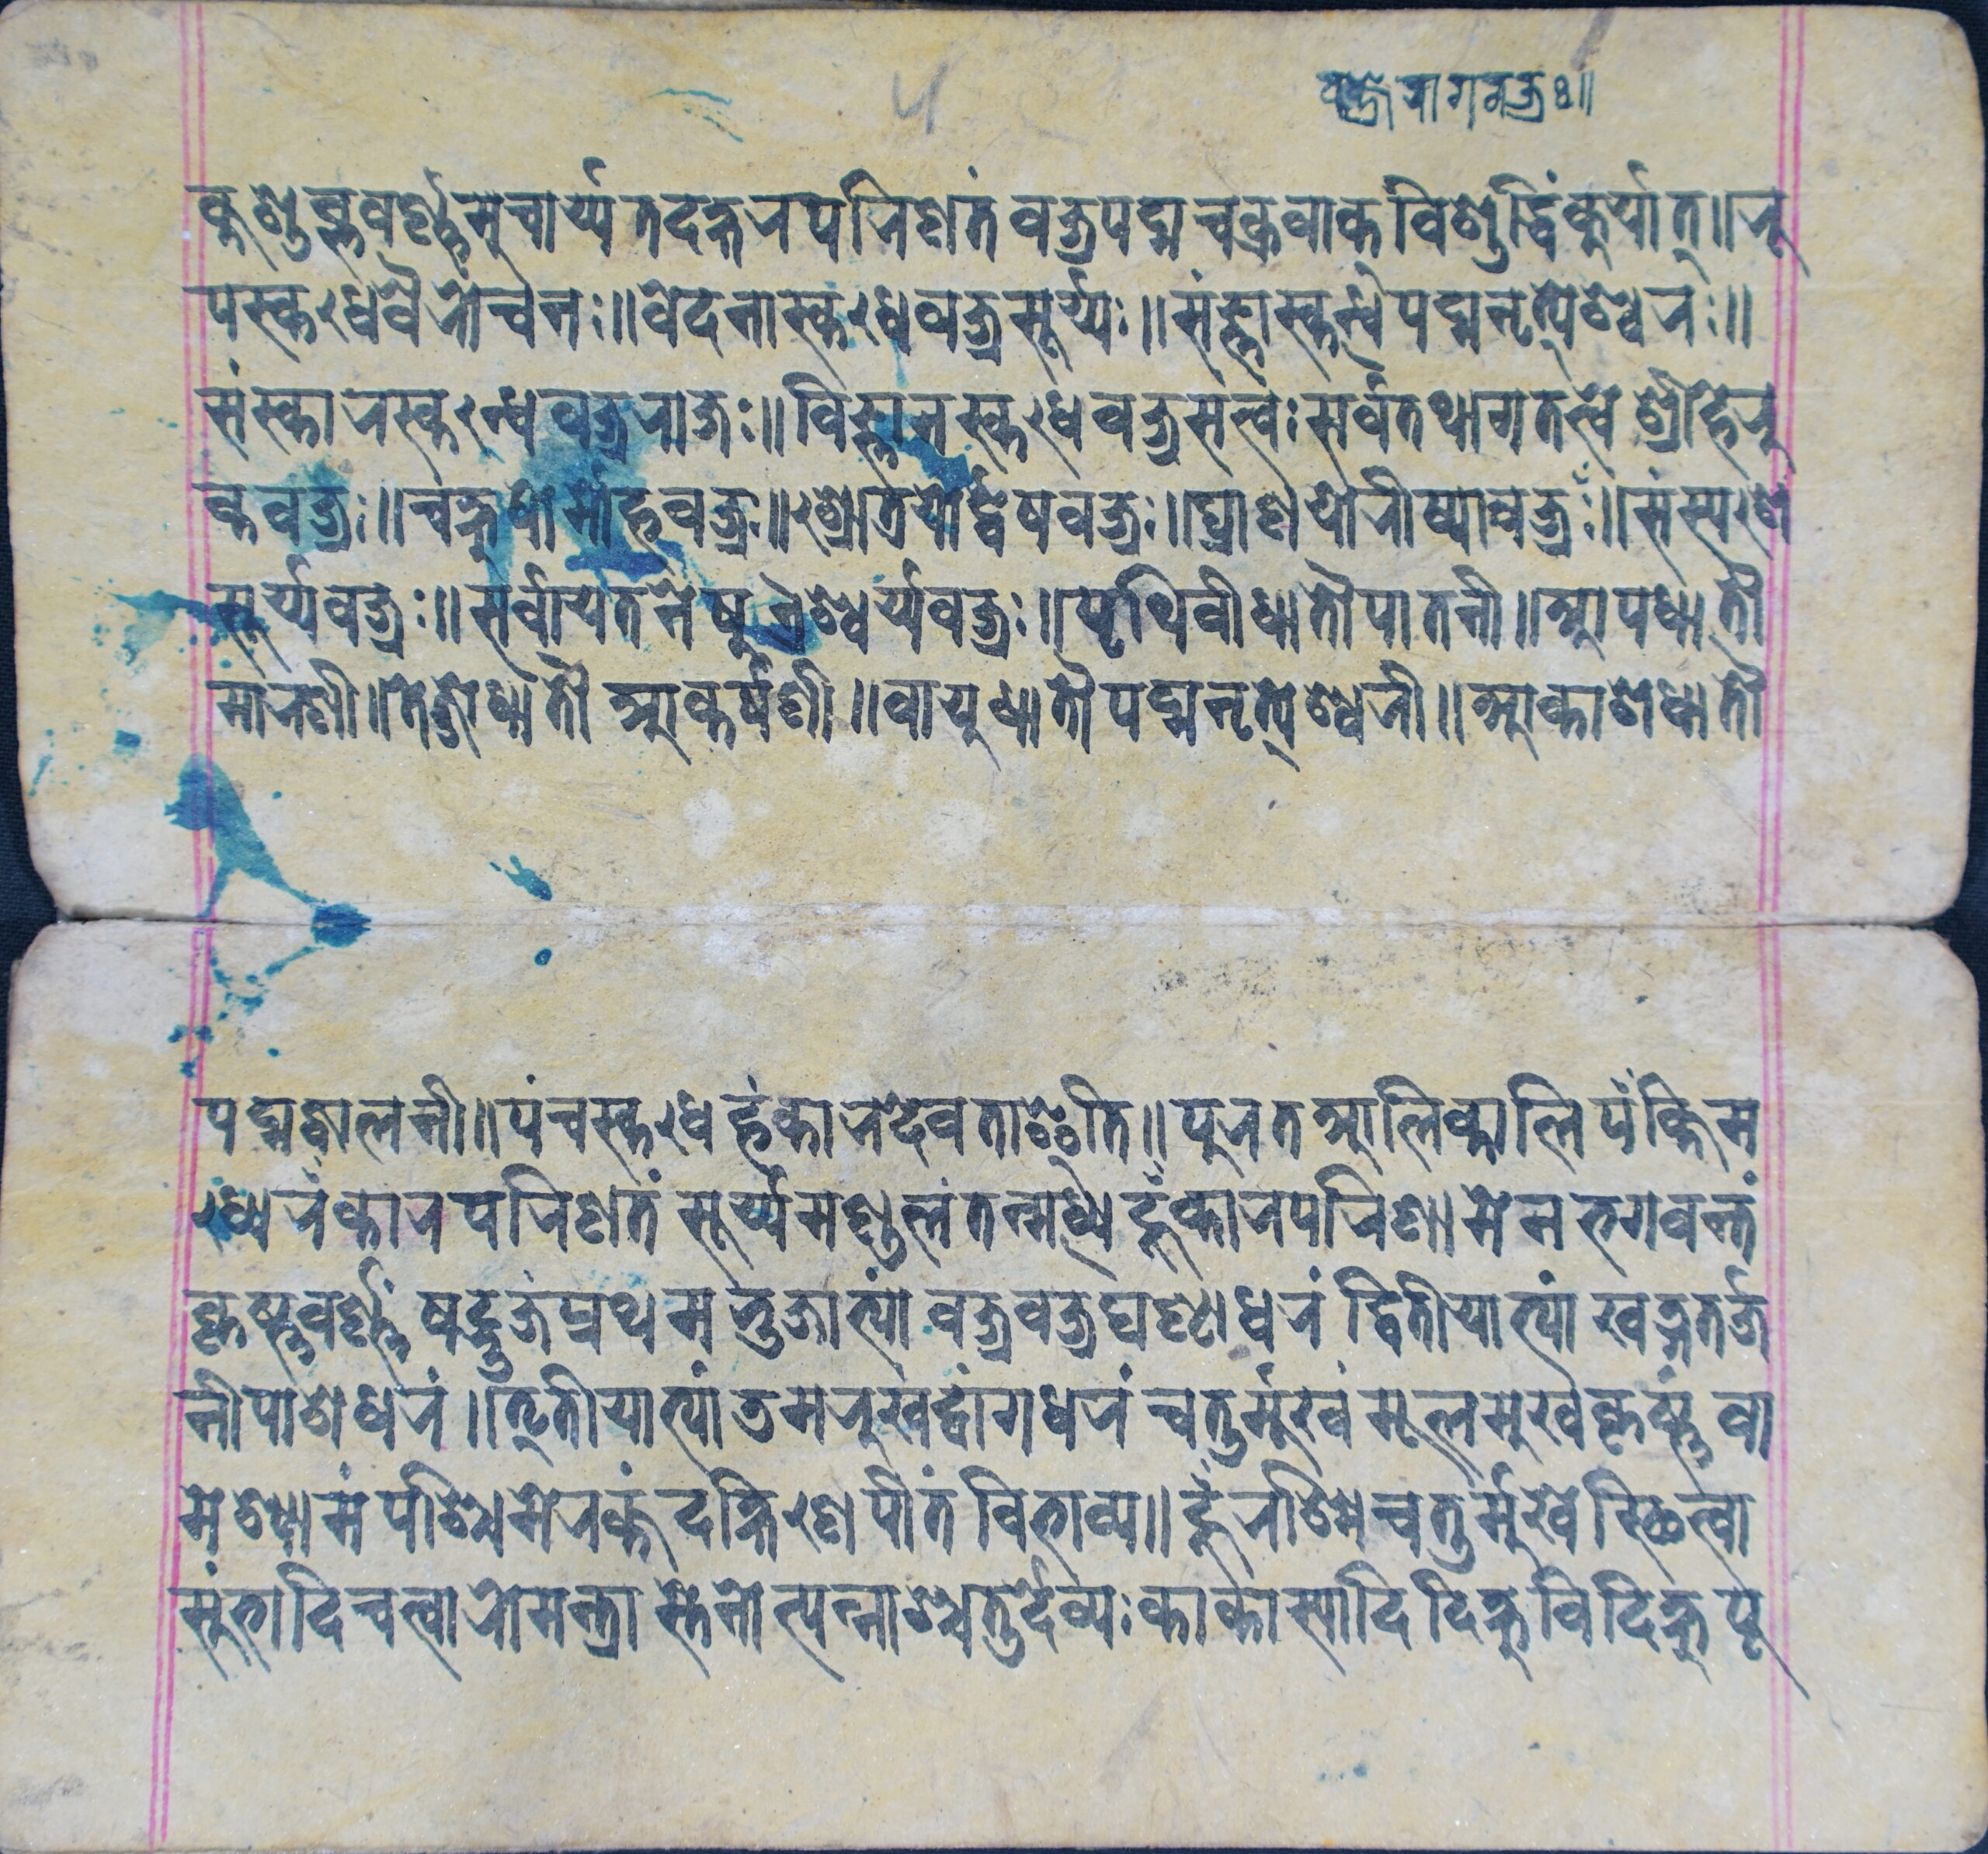 वक्त्रे रागवज्रः॥
कृशुक्लवर्ण्णमुचार्य्य तदक्षरपरिणतं वज्रपद्मचक्रवाक्तविशुद्धिंकुर्यात्॥रू
पस्कन्धेवैरोचनः॥वेदनास्कन्धेवज्रसूर्य्यः॥संज्ञास्कन्धेपद्मनृत्येश्वरः॥
संस्कारस्कन्धेवज्रराजः॥विज्ञानस्कन्धेवज्रसत्त्वः सर्वतथागतत्वे श्रीहेरु
कवज्रः॥चक्षुषोर्मोहवज्रः॥श्रोत्रयोर्द्वेषवज्रः॥घ्राणयोरीर्ष्यावज्रः॥संस्पर्शे
सूर्य्यवज्रः॥सर्वायतनेषु ऐश्वर्य्यवज्रः॥पृथिवीधातौपातनी॥आपधातौ
मारणी॥तेजोधातौ आकर्षणी॥वायुधातौपद्मनृत्येश्वरी॥आकाशेधातौ
पद्मज्वालनी॥पंचस्कन्धेहंकारदेवताश्चेति॥पुरत आलिकालिपंक्तिम
ध्ये रंकारपरिणतं सूर्य्यमण्डलं तन्मध्ये हूँकारपरिणामेन भगवन्तं
कृष्णवर्ण्णं षड्भुजं प्रथमभुजाभ्यां वज्रवज्रघण्टाधरं द्वितीयाभ्यां खड्गतर्ज
नीपाशधरं।तृतीयाभ्यां डमरुखट्वांगधरं चतुर्मुखं मूलमुखंकृष्णं वा
मेश्यामं पश्चिमेरक्तंदक्षिणेपीतं विभाव्य॥हूँरश्मि चतुर्मुखे स्थित्वा
सुंभादिचत्वारोमन्त्रास्तेनोत्पन्नाश्चतुर्देव्यः काकास्यादि दिक्षुविदिक्षु पू